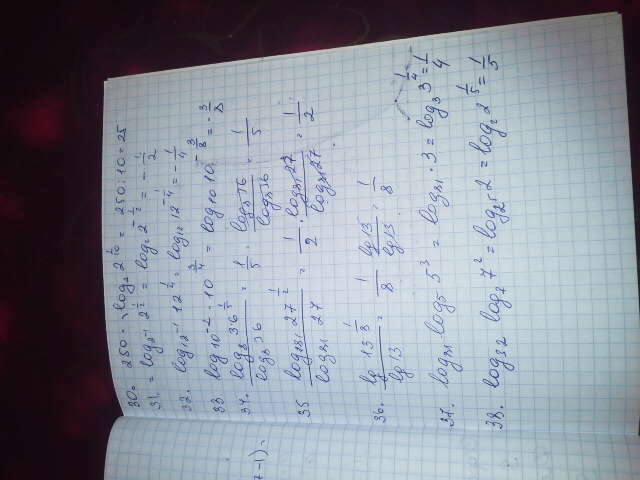 30. 250 · log₂ 2^(1/10) = 250 : 10 = 25
31. = log₂⁻¹ 2^(1/2) = log₂ 2^(-1/2) = -1/2
32. log₁₂⁻¹ 12^(1/4) = log₁₂ 12^(-1/4) = -1/4
33 log₁₀⁻² · 10^(3/4) = log₁₀ 10^(-3/8) = -3/8
34. (log₈ 36^(1/5))/(log₈ 36) = 1/5 · (log₈ 36)/(log₈ 36) = 1/5
35 (log₂₃₁ 27^(1/2))/(log₃₁ 27) = 1/2 · (log₃₁ 27)/(log₃₁ 27) = 1/2
7-1) =
36. (lg 13^(1/8))/(lg 13) = 1/8 (lg 13)/(lg 13) = 1/8
37. log₈₁ log₅ 5³ = log₈₁ · 3 = log₃ 3^(1/4) = 1/4
38. log₃₂ log₇ 7² = log₂⁵ 2 = log₂ 2^(1/5) = 1/5